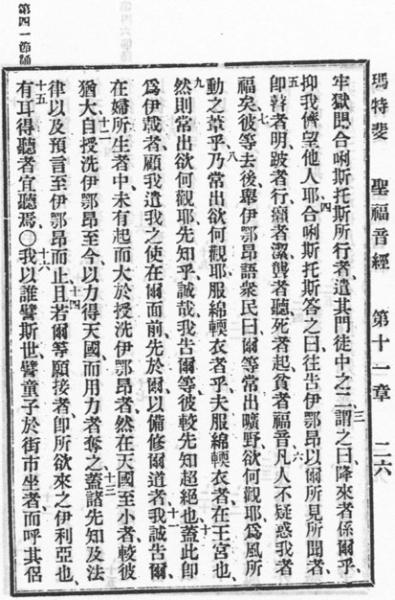 瑪特斐 聖福音經 第十一章 二六
牢獄聞合唎斯托斯所行者、遣其門徒中之二、三謂之曰降來者係爾乎、
抑我儕望他人耶、四合唎斯托斯答之曰往告伊鄂昂以爾所見所聞者、
五卽瞽者明、跛者行、癩者潔、聾者聽、死者起、貧者福音、六凡人不疑惑我者
福矣、七彼等去後、舉伊鄂昂語衆民曰、爾等常出曠野欲何觀耶、爲風所
動之葦乎、八乃常出欲何觀耶、服綿輭衣者乎、夫服綿輭衣者、在王宮也、
九然則常出欲何觀耶、先知乎、誠哉我告爾等、彼較先知超絕也、十蓋此卽
爲伊哉者、顧我遣我之使在爾面前、先於爾以備修爾道者、十一我誠告爾、
在婦所生者中、未有起而大於授洗伊鄂昂者、然在天國至小者較彼
猶大、十二自授洗伊鄂昂至今、以力得天國、而用力者奪之、十三蓋諸先知及法
律以及預言至伊鄂昂而止、十四且若爾等願接者、卽所欲來之伊利亞也、
十五有耳得聽者宜聽焉、○十六我以誰譬斯世、譬童子於街市坐者、而呼其侶
第四一節誦